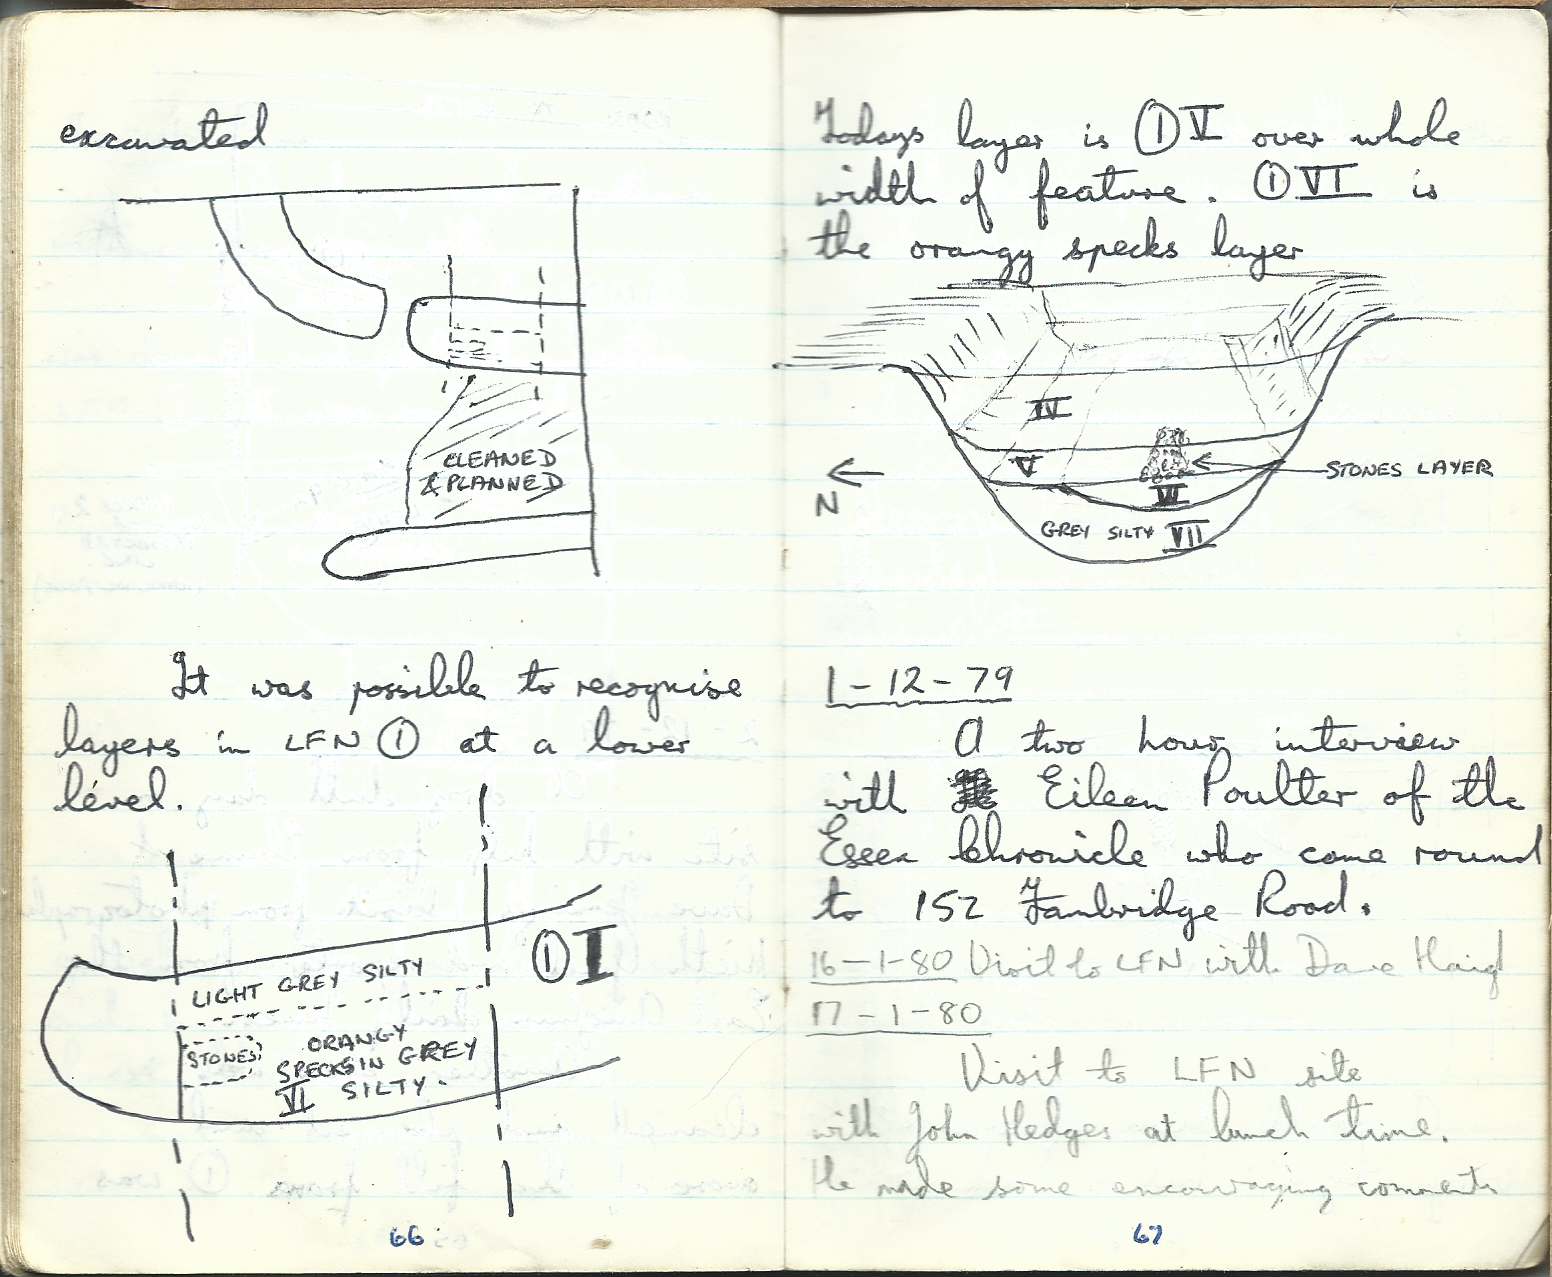 excavated
CLEANED
& PLANNED
It was possible to recognise
layers in LFN ① at a lower
level.
① I
LIGHT GREY SILTY
STONES
ORANGY
SPECKS IN GREY
VI SILTY.
66
Todays layer is ① V over whole
width of feature. ① VI is
the orangy specks layer
IV
V
STONES LAYER
N
VI
GREY SILTY VII
1-12-79
A two hour interview
with Eileen Poulter of the
Essex Chronicle who came round
to 152 Fambridge Road.
16-1-80 Visit to LFN with Dave Haigh
17-1-80
Visit to LFN site
with John Hedges at lunch time.
He made some encouraging comments
67